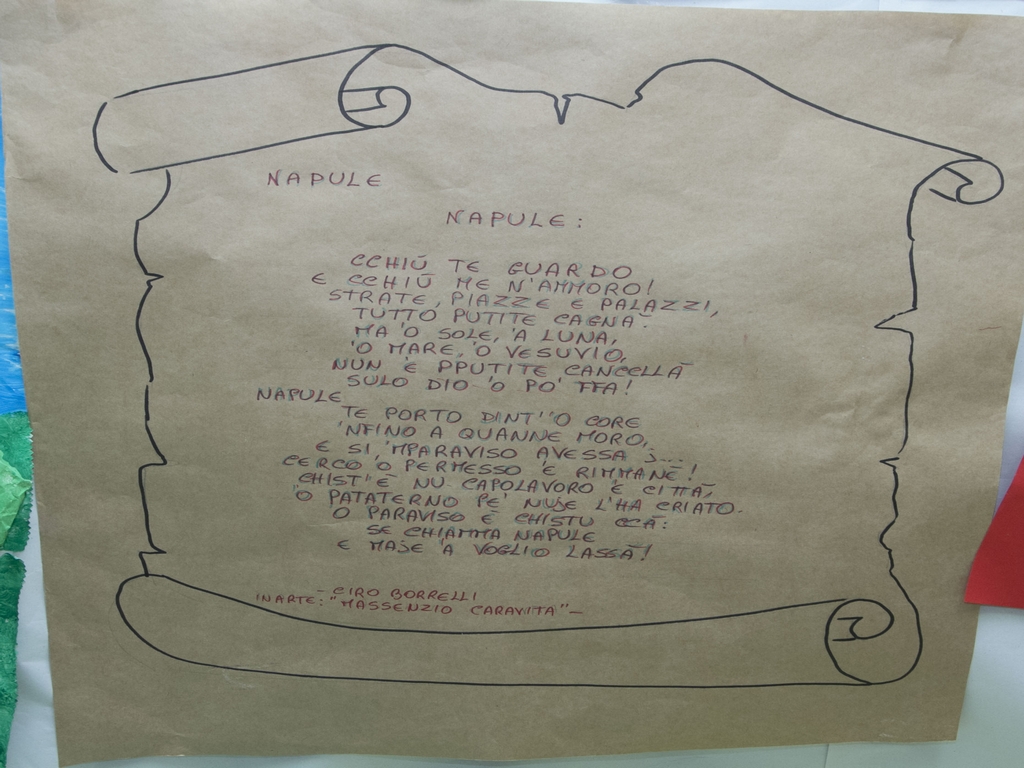 NAPULE
NAPULE:
CCHIŪ TE GUARDO
E CCHIŪ ME N'AMMORO!
STRATE, PIAZZE E PALAZZI,
TUTTO PUTITE CAGNĀ.
MA 'O SOLE, 'A LUNA,
'O MARE, 'O VESUVIO,
NUN 'E PPUTITE CANCELLĀ
SULO DIO 'O PO' FFA!
NAPULE
TE PORTO DINT''O CORE
'NFINO A QUANNE MORO,
E SI, 'MPARAVISO AVESSA J....
CERCO 'O PERMESSO 'E RIMMANĒ!
CHIST'Ē NU CAPOLAVORO 'E CITTĀ,
'O PATATERNO PE' NUJE L'HA CRIATO.
O PARAVISO Ē CHISTU CCĀ:
SE CHIAMMA NAPULE
E MAJE 'A VOGLIO LASSĀ!
- CIRO BORRELLI
INARTE: "MASSENZIO CARAVITA" -